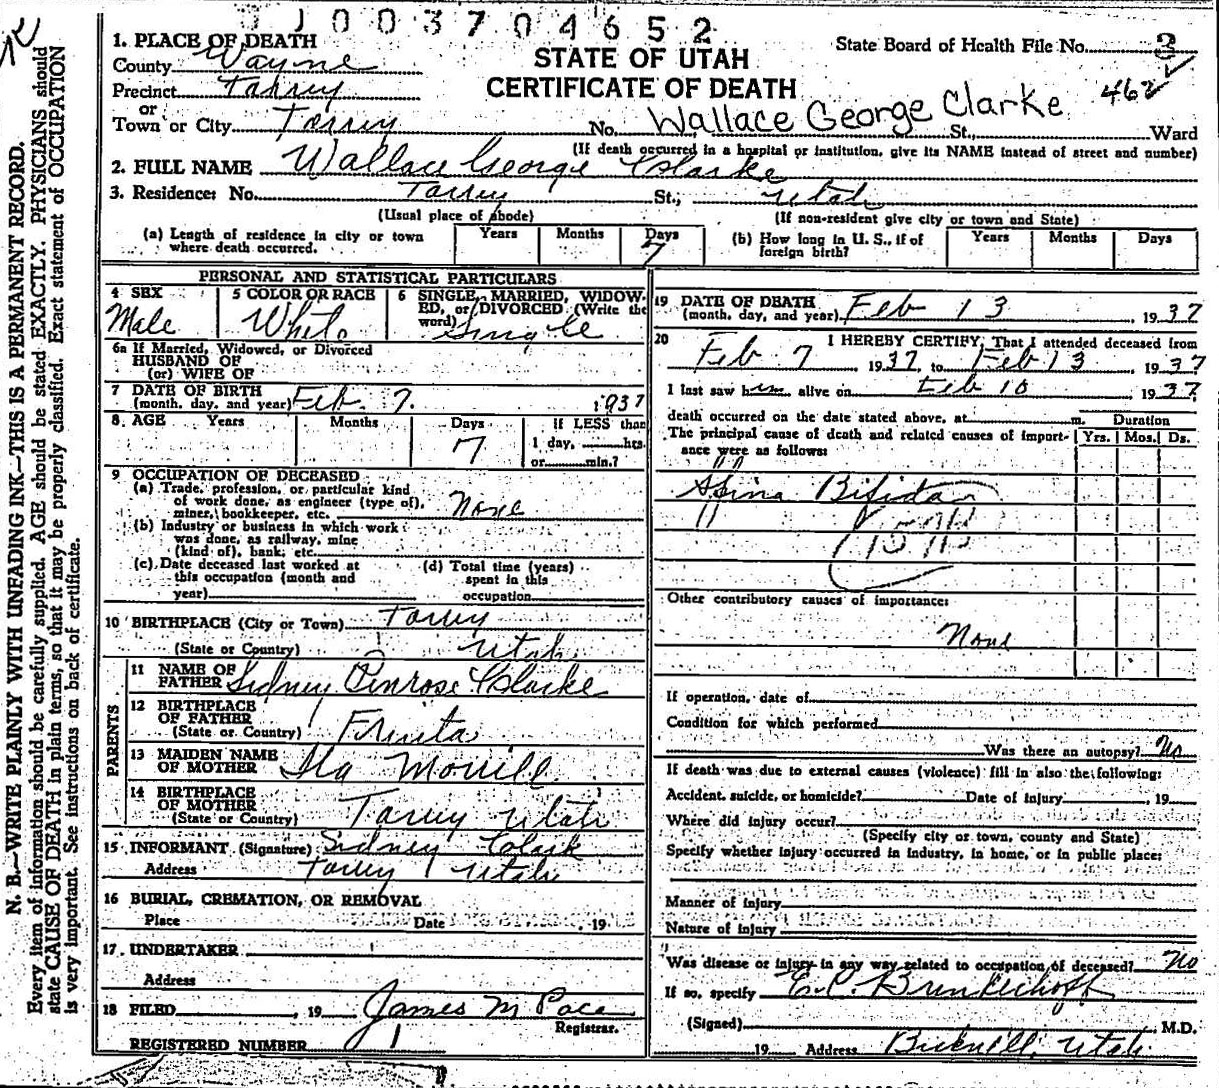 1003704652
1. PLACE OF DEATH
County Wayne
Precinct Torrey
or
Town or City Torrey
STATE OF UTAH
CERTIFICATE OF DEATH
State Board of Health File No. 3
462
No. Wallace George Clarke St., Ward
(If death occurred in a hospital or institution, give its NAME instead of street and number)
2. FULL NAME Wallace George Clarke
3. Residence: No. Torrey St., Utah
(Usual place of abode) (If non-resident give city or town and State)
(a) Length of residence in city or town where death occurred. Years Months Days 7
(b) How long in U. S., if of foreign birth? Years Months Days
PERSONAL AND STATISTICAL PARTICULARS
4 SEX Male
5 COLOR OR RACE White
6 SINGLE, MARRIED, WIDOWED, or DIVORCED (Write the word) Single
6a If Married, Widowed, or Divorced
HUSBAND OF
(or) WIFE OF
7 DATE OF BIRTH
(month, day, and year) Feb. 7. 1937
8. AGE Years Months Days 7 If LESS than
1 day, hrs.
or min.?
9 OCCUPATION OF DECEASED
(a) Trade, profession, or particular kind
of work done, as engineer (type of),
miner, bookkeeper, etc. None
(b) Industry or business in which work
was done, as railway, mine
(kind of), bank, etc.
(c) Date deceased last worked at
this occupation (month and
year)
(d) Total time (years)
spent in this
occupation
10 BIRTHPLACE (City or Town) Torrey
(State or Country) Utah
PARENTS
11 NAME OF
FATHER Sidney Penrose Clarke
12 BIRTHPLACE
OF FATHER
(State or Country) Fruita
13 MAIDEN NAME
OF MOTHER Ila Morrill
14 BIRTHPLACE
OF MOTHER
(State or Country) Torrey Utah
15 INFORMANT (Signature) Sidney Clark
Address Torrey Utah
16 BURIAL, CREMATION, OR REMOVAL
Place Date , 19
17. UNDERTAKER
Address
18 FILED , 19 James M Pace
Registrar.
REGISTERED NUMBER 1
19 DATE OF DEATH
(month, day, and year) Feb 13 , 1937
20 I HEREBY CERTIFY, That I attended deceased from
Feb 7 1937, to Feb 13 1937
I last saw him alive on Feb 10 1937
death occurred on the date stated above, at m. Duration
The principal cause of death and related causes of importance were as follows: Yrs. Mos. Ds.
Spina Bifida
Other contributory causes of importance:
None
If operation, date of
Condition for which performed
Was there an autopsy? No
If death was due to external causes (violence) fill in also the following:
Accident, suicide, or homicide? Date of injury , 19
Where did injury occur?
(Specify city or town, county and State)
Specify whether injury occurred in industry, in home, or in public place:
Manner of injury
Nature of injury
Was disease or injury in any way related to occupation of deceased? No
If so, specify E.C. Brinkerhoff
(Signed) M.D.
19 Address Bicknell, Utah
N. B.—WRITE PLAINLY WITH UNFADING INK—THIS IS A PERMANENT RECORD.
Every item of information should be carefully supplied. AGE should be stated EXACTLY. PHYSICIANS should
state CAUSE OF DEATH in plain terms, so that it may be properly classified. Exact statement of OCCUPATION
is very important. See instructions on back of certificate.